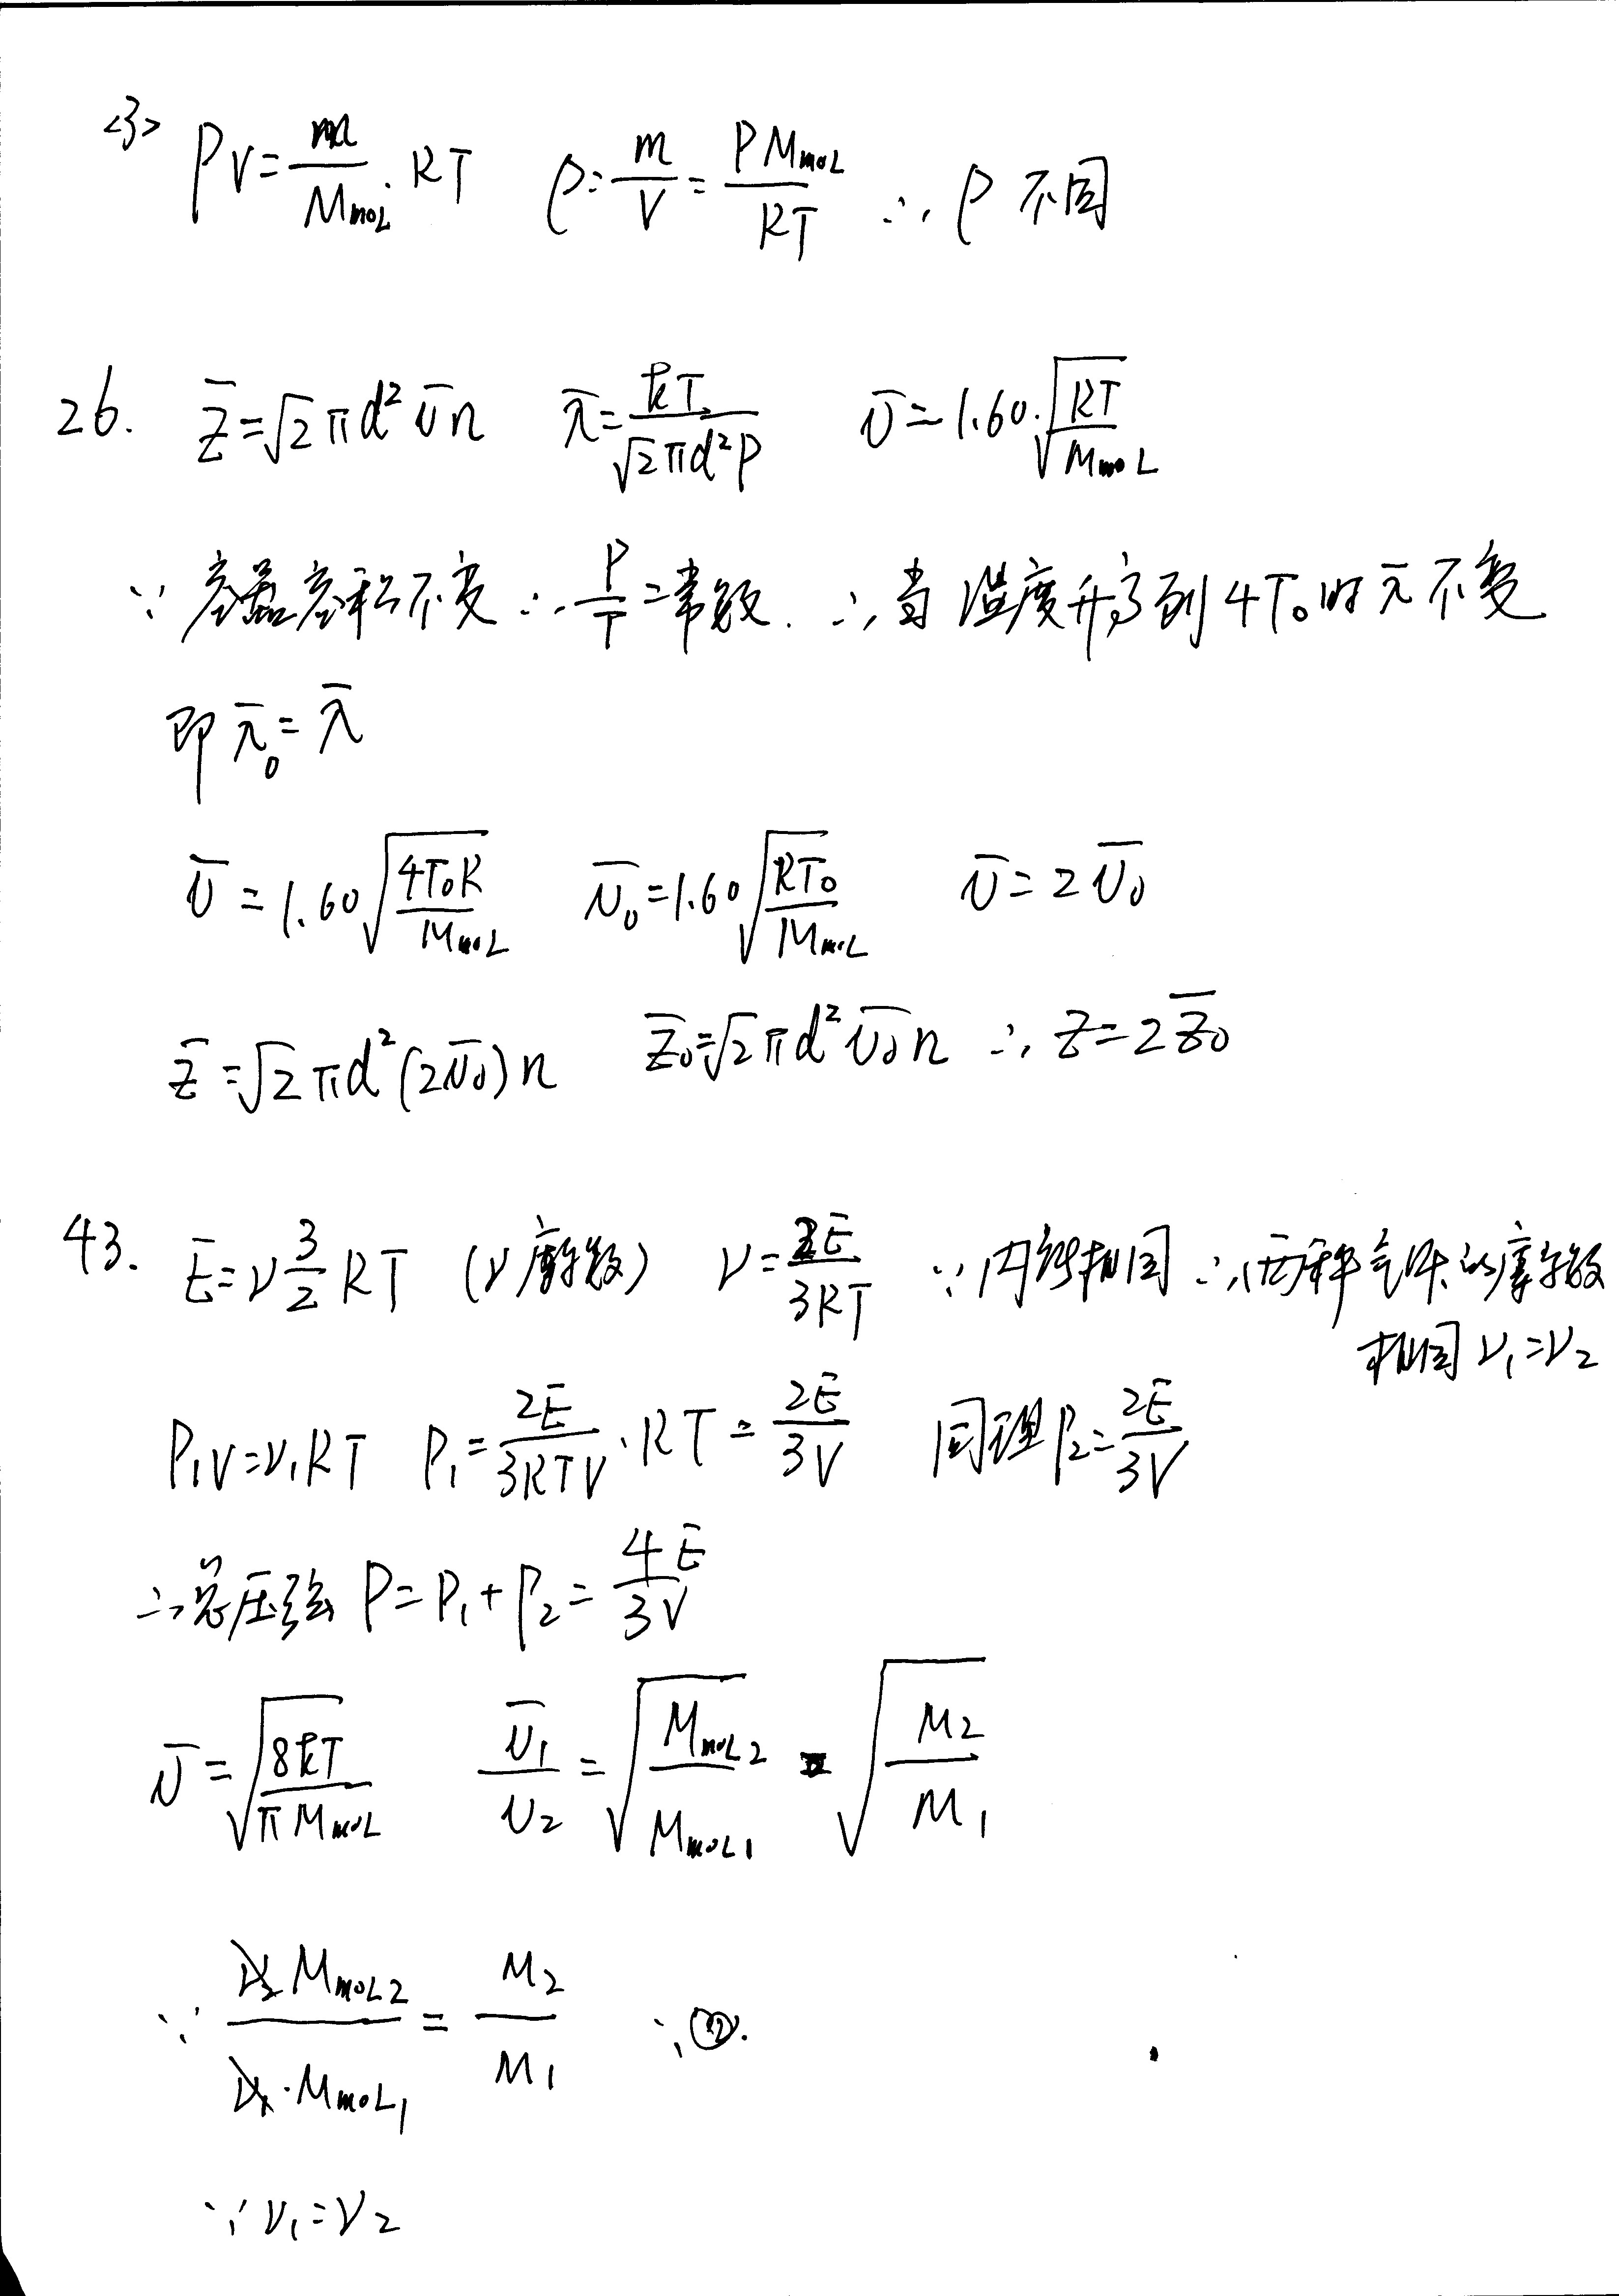 <3> PV=m/M_mol·RT ρ=m/V=PM_mol/RT ∴ρ不同
26. z̄=√2πd²ῡn λ̄=kT/√2πd²P ῡ=1.60·√(RT/M_mol)
∵容器容积不变∴P/T=常数.∴当温度升高到4T₀时λ̄不变
即λ̄₀=λ̄
ῡ=1.60√(4T₀R/M_mol) ῡ₀=1.60√(RT₀/M_mol) ῡ=2ῡ₀
z̄=√2πd²(2ῡ₀)n z̄₀=√2πd²ῡ₀n ∴z=2z̄₀
43. E=ν3/2RT (ν摩尔数) ν=2E/3RT ∵内能相同∴两种气体的摩尔数
相同ν₁=ν₂
P₁V=ν₁RT P₁=2E/3RTV·RT=2E/3V 同理P₂=2E/3V
∴总压强P=P₁+P₂=4E/3V
ῡ=√(8kT/πM_mol) ῡ₁/υ₂=√(M_mol2/M_mol1)=√(M₂/M₁)
∵ν₂M_mol2/ν₁·M_mol1=M₂/M₁
∵ν₁=ν₂